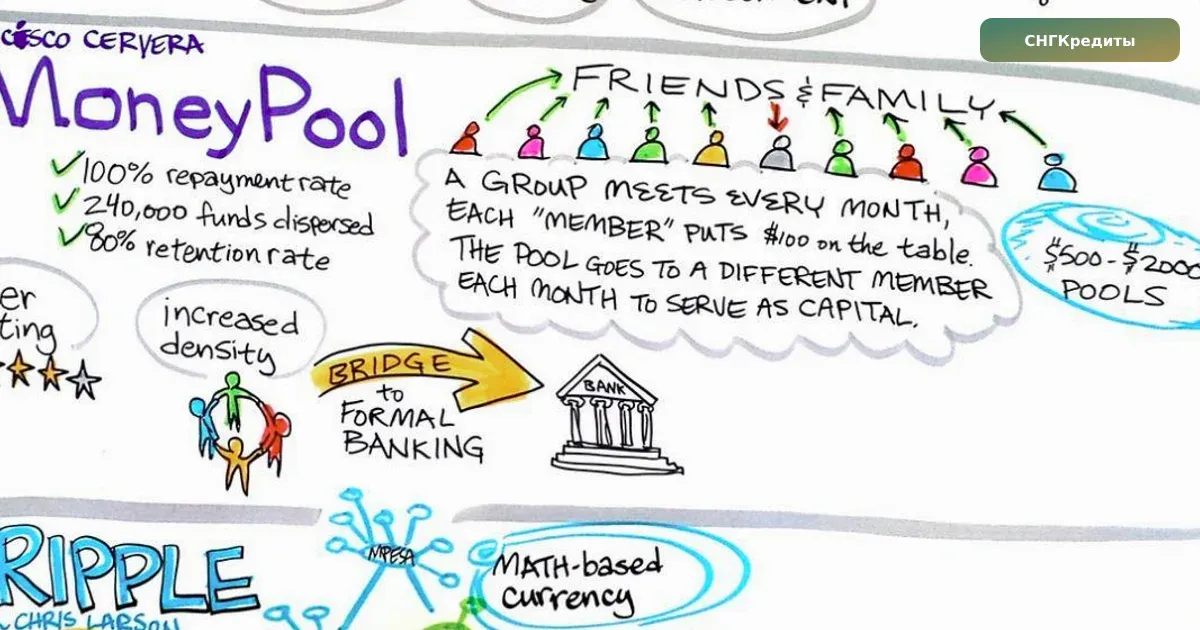 СНГКредиты
CISCO CERVERA
MoneyPool
100% repayment rate
240,000 funds dispersed
80% retention rate
FRIENDS & FAMILY
A GROUP MEETS EVERY MONTH,
EACH "MEMBER" PUTS $100 on the table.
THE POOL GOES TO A DIFFERENT MEMBER
EACH MONTH TO SERVE AS CAPITAL.
$500-$2000
POOLS
er
ting
increased
density
BRIDGE
to
FORMAL
BANKING
BANK
RIPPLE
CHRIS LARSON
MPESA
MATH-based
currency